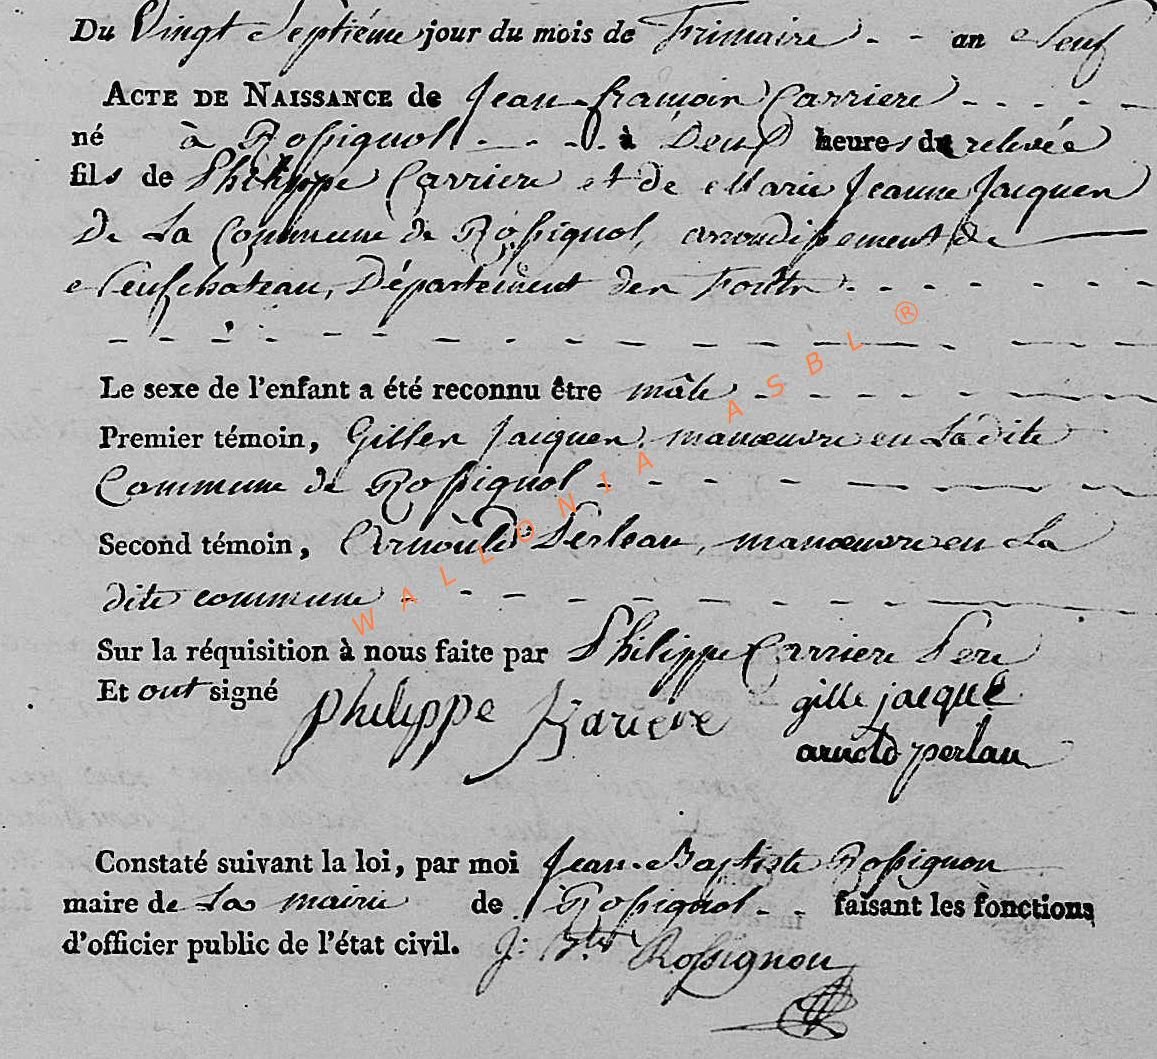 Du Vingt Septiéme jour du mois de Frimaire - - an Neuf
ACTE DE NAISSANCE de Jean-françois Carriere - - - - -
né à Rossignol - - - - à Deux heures du relevée
fils de Philippe Carriere et de Marie Jeanne Jacques
De La Commune de Rossignol, arrondissement de
Neufchateau, Département des Forêts - - - - - - -
Le sexe de l'enfant a été reconnu être mâle - - - - - -
Premier témoin, Gilles Jacques, manœuvre en La dite
Commune de Rossignol - - - - - -
Second témoin, Arnould Perleau, manœuvre en La
dite commune - - - - - - -
Sur la réquisition à nous faite par Philippe Carriere Pere
Et ont signé
philippe Karieve
gille jacque
arnold perlau
Constaté suivant la loi, par moi Jean-Baptiste Rossignon
maire de La mairie de Rossignol - - faisant les fonctions
d'officier public de l'état civil. J: Bte Rossignon
WALLONIA ASBL ®